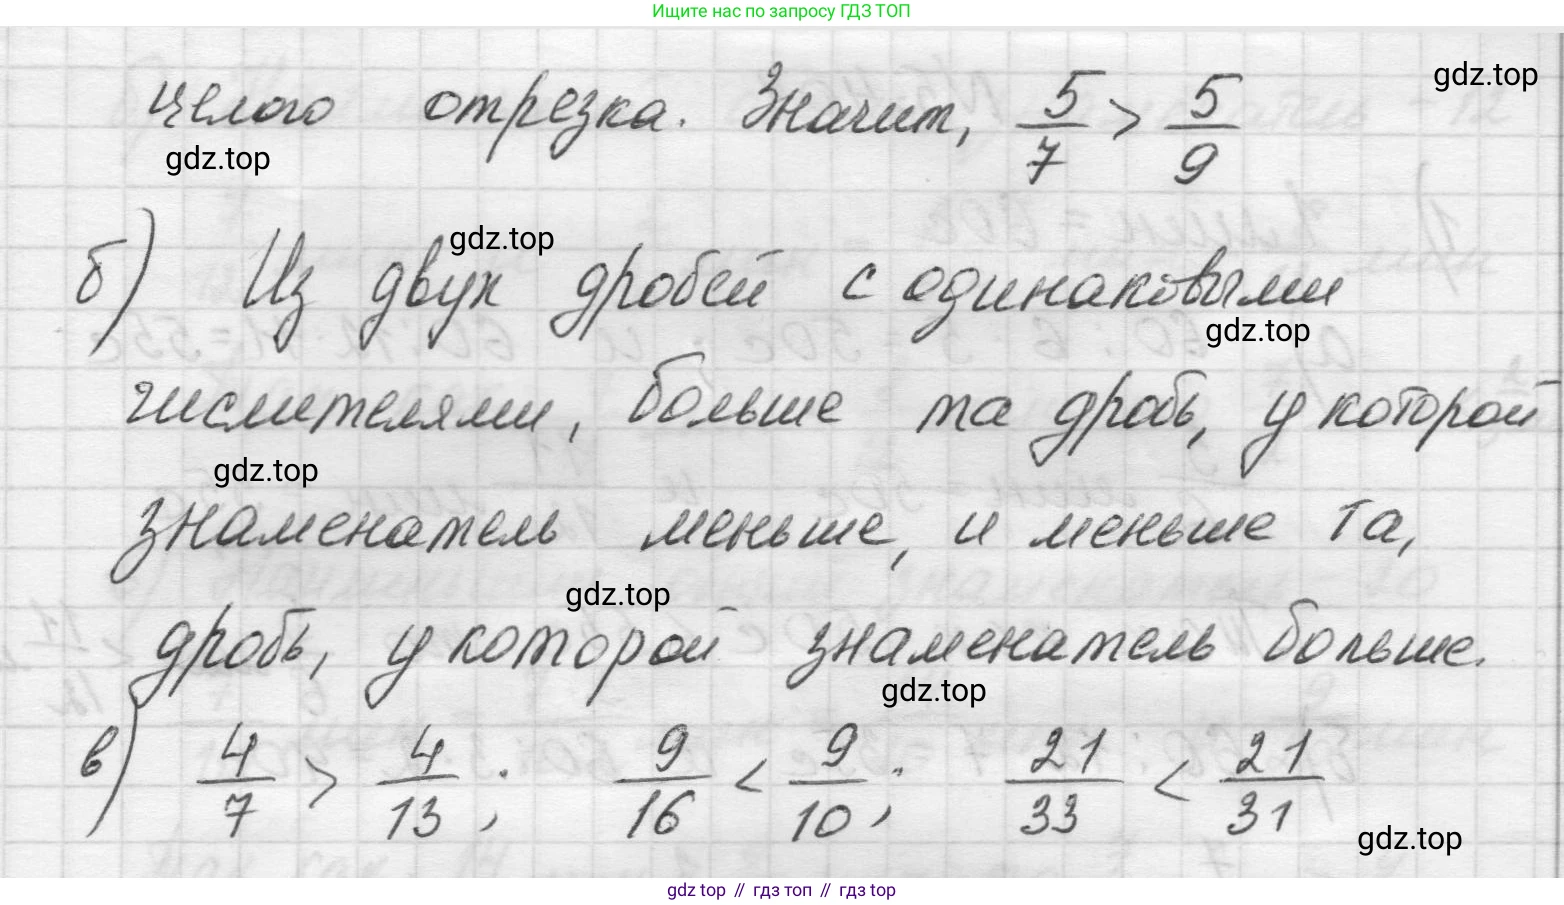 Ищите нас по запросу ГДЗ ТОП
целого отрезка. Значит, 5/7 > 5/9
gdz.top
gdz.top
б) Из двух дробей с одинаковыми
gdz.top
gdz.top
числителями, больше та дробь, у которой
gdz.top
знаменатель меньше, и меньше та,
gdz.top
дробь, у которой знаменатель больше.
gdz.top
в) 4/7 > 4/13; 9/16 < 9/10; 21/33 < 21/31
gdz.top
gdz top // гдз топ // гдз top